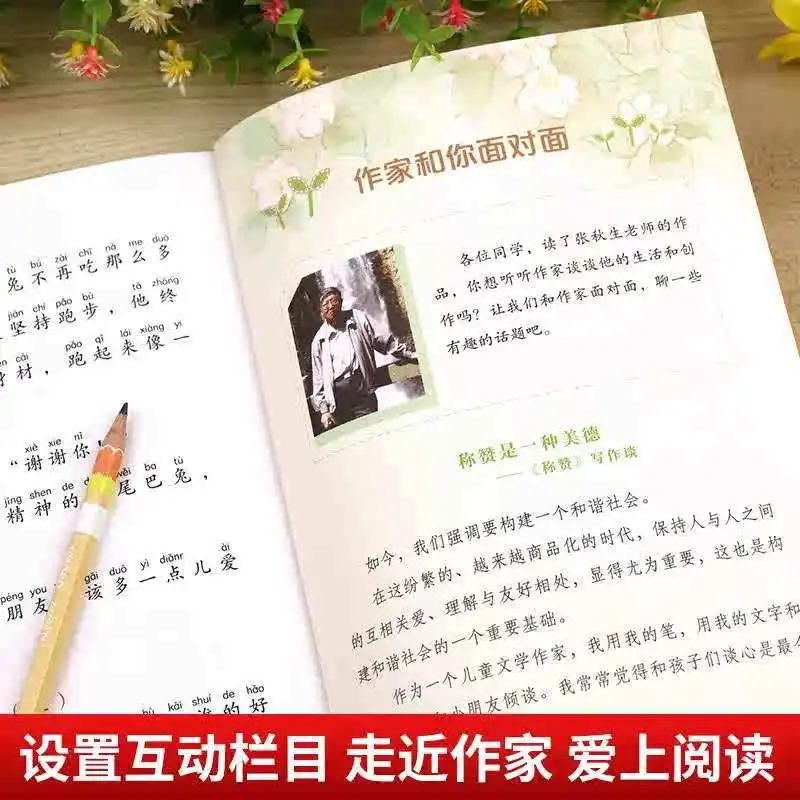 tù bú zài chī nà me duō
兔不再吃那么多
jiān chí pǎo bù tā zhōng
坚持跑步，他终
cái pǎo qǐ lái xiàng yì
材，跑起来像一
xiè xie nǐ
“谢谢你，
jīng shen de wěi ba tù
精神的 尾巴兔，
péng you gāi duō yì diǎnr ài
朋友 该多一点儿爱
kāi shuǐ de hǎo
的好
作家和你面对面
各位同学，读了张秋生老师的作
品，你想听听作家谈谈他的生活和创
作吗？让我们和作家面对面，聊一些
有趣的话题吧。
称赞是一种美德
——《称赞》写作谈
如今，我们强调要构建一个和谐社会。
在这纷繁的、越来越商品化的时代，保持人与人之间
的互相关爱、理解与友好相处，显得尤为重要，这也是构
建和谐社会的一个重要基础。
作为一个儿童文学作家，我用我的笔，用我的文字和
小朋友倾谈。我常常觉得和孩子们谈心是最
设置互动栏目 走近作家 爱上阅读